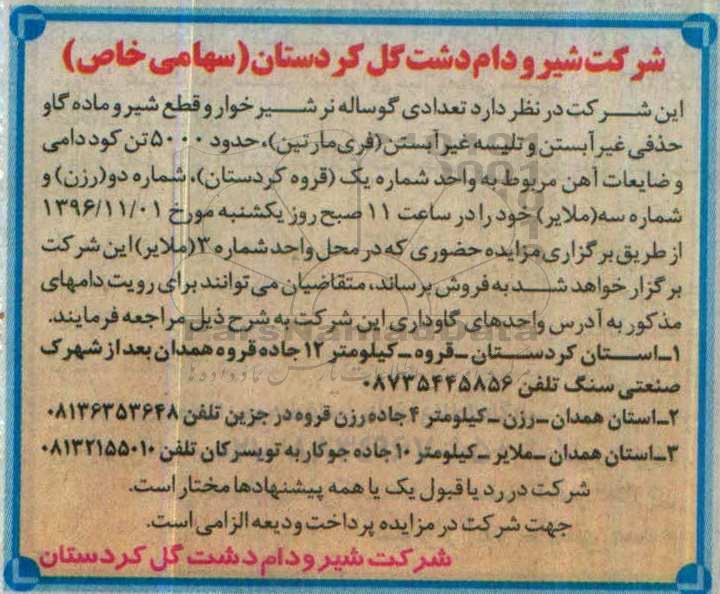 شرکت شیر و دام دشت گل کردستان (سهامی خاص)
این شرکت در نظر دارد تعدادی گوساله نر شیرخوار و قطع شیر و ماده گاو
حذفی غیرآبستن و تلیسه غیرآبستن (فری‌مارتین)، حدود ۵۰۰۰ تن کود دامی
و ضایعات آهن مربوط به واحد شماره یک (قروه کردستان)، شماره دو (رزن) و
شماره سه (ملایر) خود را در ساعت ۱۱ صبح روز یکشنبه مورخ ۱۳۹۶/۱۱/۰۱
از طریق برگزاری مزایده حضوری که در محل واحد شماره ۳ (ملایر) این شرکت
برگزار خواهد شد به فروش برساند، متقاضیان می‌توانند برای رویت دامهای
مذکور به آدرس واحدهای گاوداری این شرکت به شرح ذیل مراجعه فرمایند.
۱ـ استان کردستان ـ قروه ـ کیلومتر ۱۲ جاده قروه همدان بعد از شهرک
صنعتی سنگ تلفن ۰۸۷۳۵۴۴۵۸۵۶
۲ـ استان همدان ـ رزن ـ کیلومتر ۴ جاده رزن قروه در جزین تلفن ۰۸۱۳۶۳۵۳۶۴۸
۳ـ استان همدان ـ ملایر ـ کیلومتر ۱۰ جاده جوکار به تویسرکان تلفن ۰۸۱۳۲۱۵۵۰۱۰
شرکت در رد یا قبول یک یا همه پیشنهادها مختار است.
جهت شرکت در مزایده پرداخت ودیعه الزامی است.
شرکت شیر و دام دشت گل کردستان